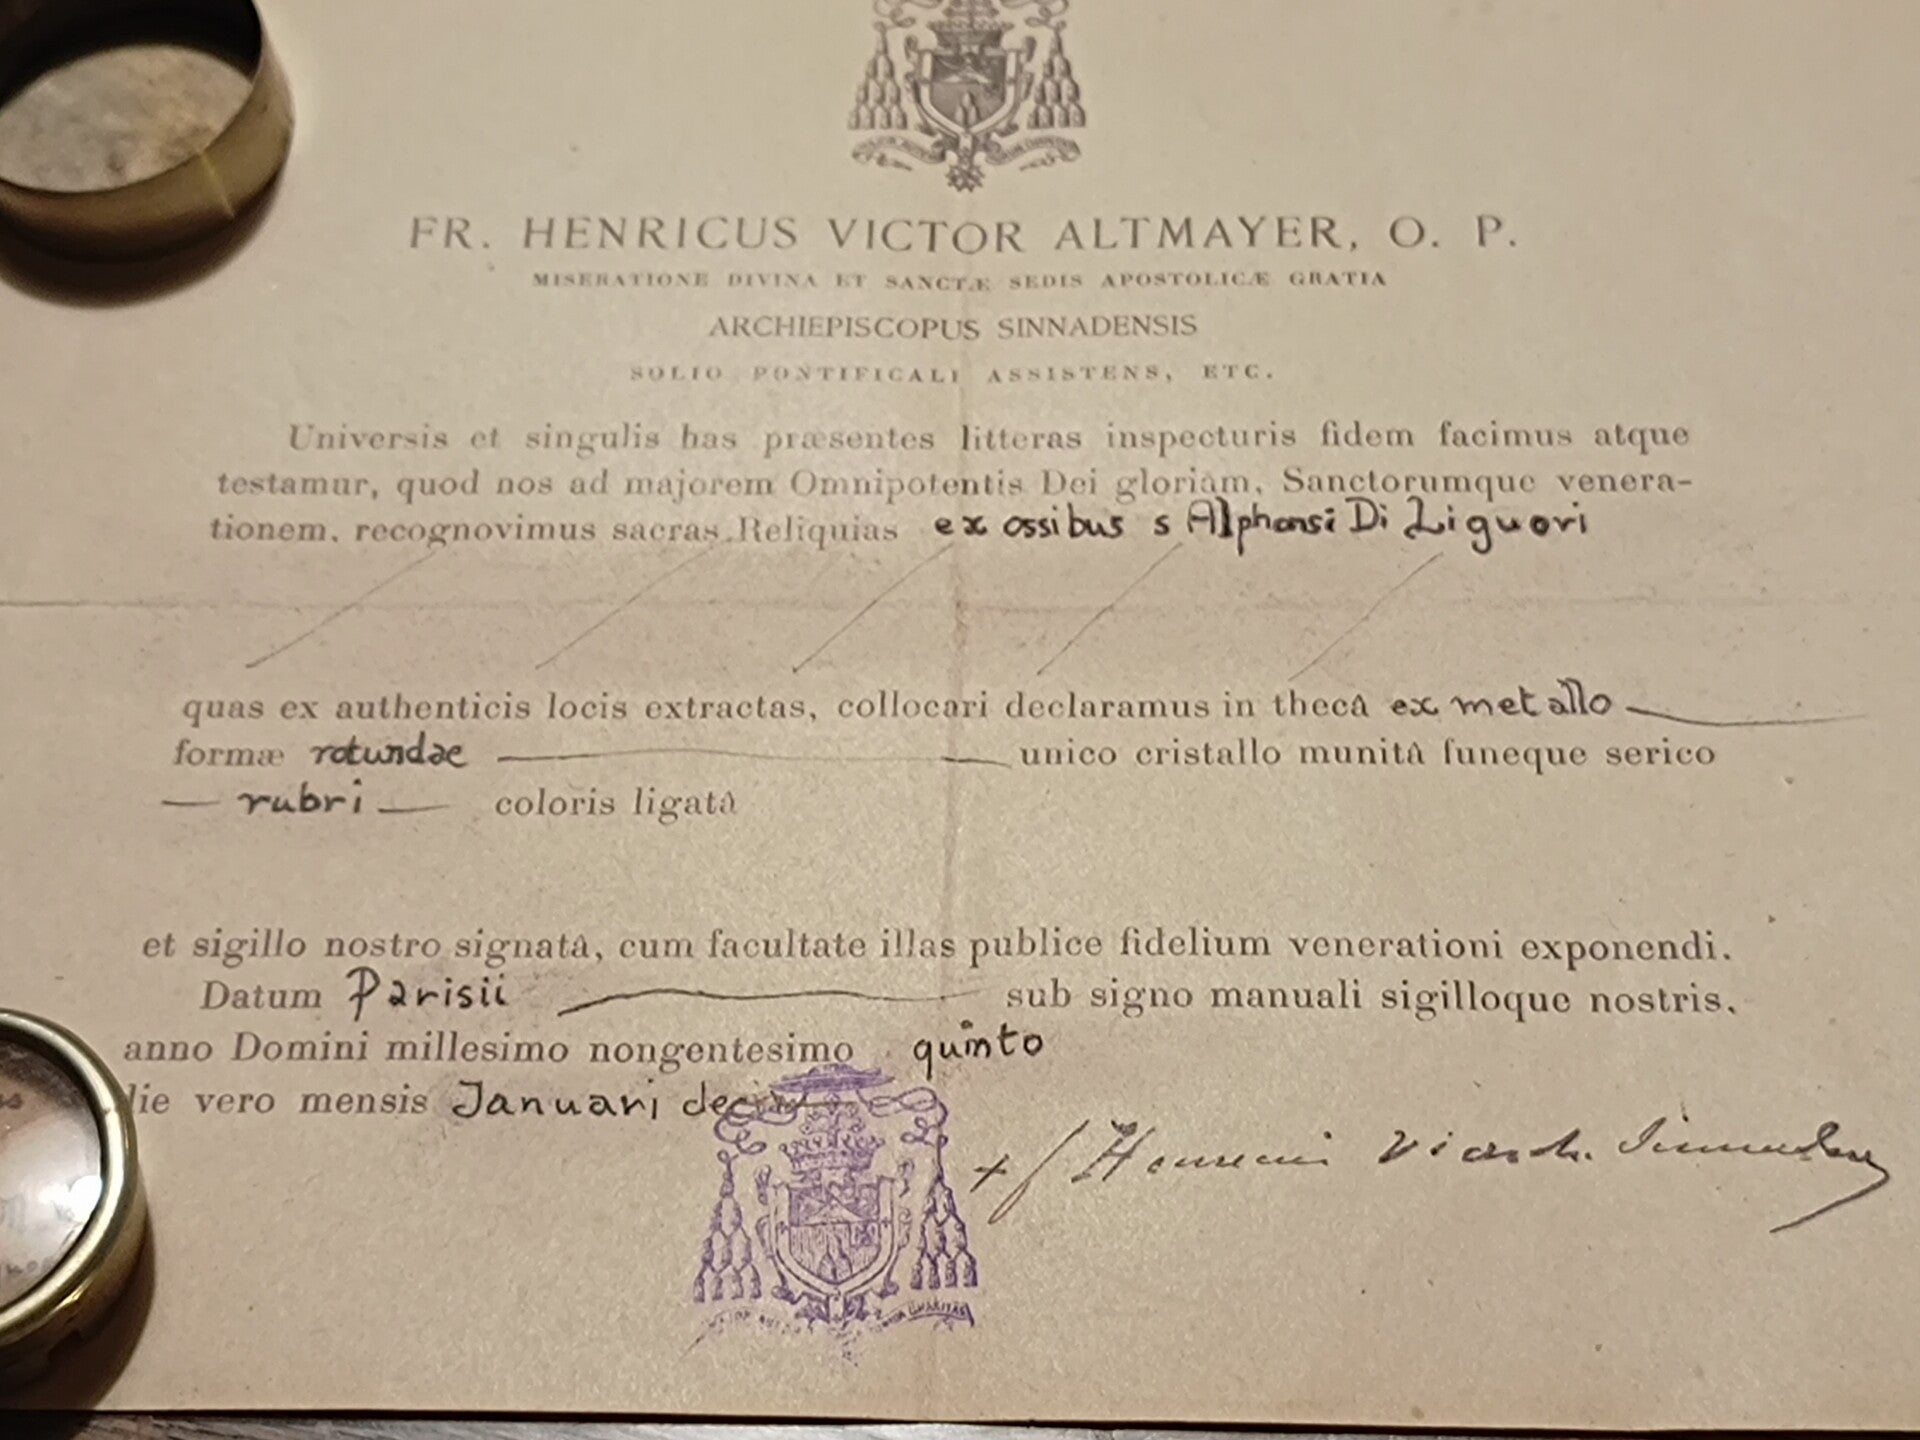 FR. HENRICUS VICTOR ALTMAYER, O. P.
MISERATIONE DIVINA ET SANCTÆ SEDIS APOSTOLICÆ GRATIA
ARCHIEPISCOPUS SINNADENSIS
SOLIO PONTIFICALI ASSISTENS, ETC.
Universis et singulis has præsentes litteras inspecturis fidem facimus atque
testamur, quod nos ad majorem Omnipotentis Dei gloriam, Sanctorumque venera-
tionem, recognovimus sacras Reliquias ex ossibus s Alphonsi Di Liguori
quas ex authenticis locis extractas, collocari declaramus in thecâ ex metallo
formæ rotundae unico cristallo munitâ funeque serico
rubri coloris ligatâ
et sigillo nostro signatâ, cum facultate illas publice fidelium venerationi exponendi.
Datum Parisii sub signo manuali sigilloque nostris,
anno Domini millesimo nongentesimo quinto
die vero mensis Januari
+ f Henricus Victor
CARITAS